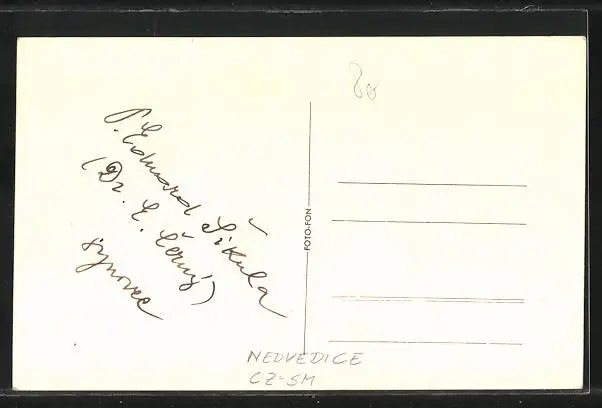 P. Eduard Šikula
(Dr. E. Černý)
synovec
80
FOTO-FON
NEDVEDICE
CZ-SM